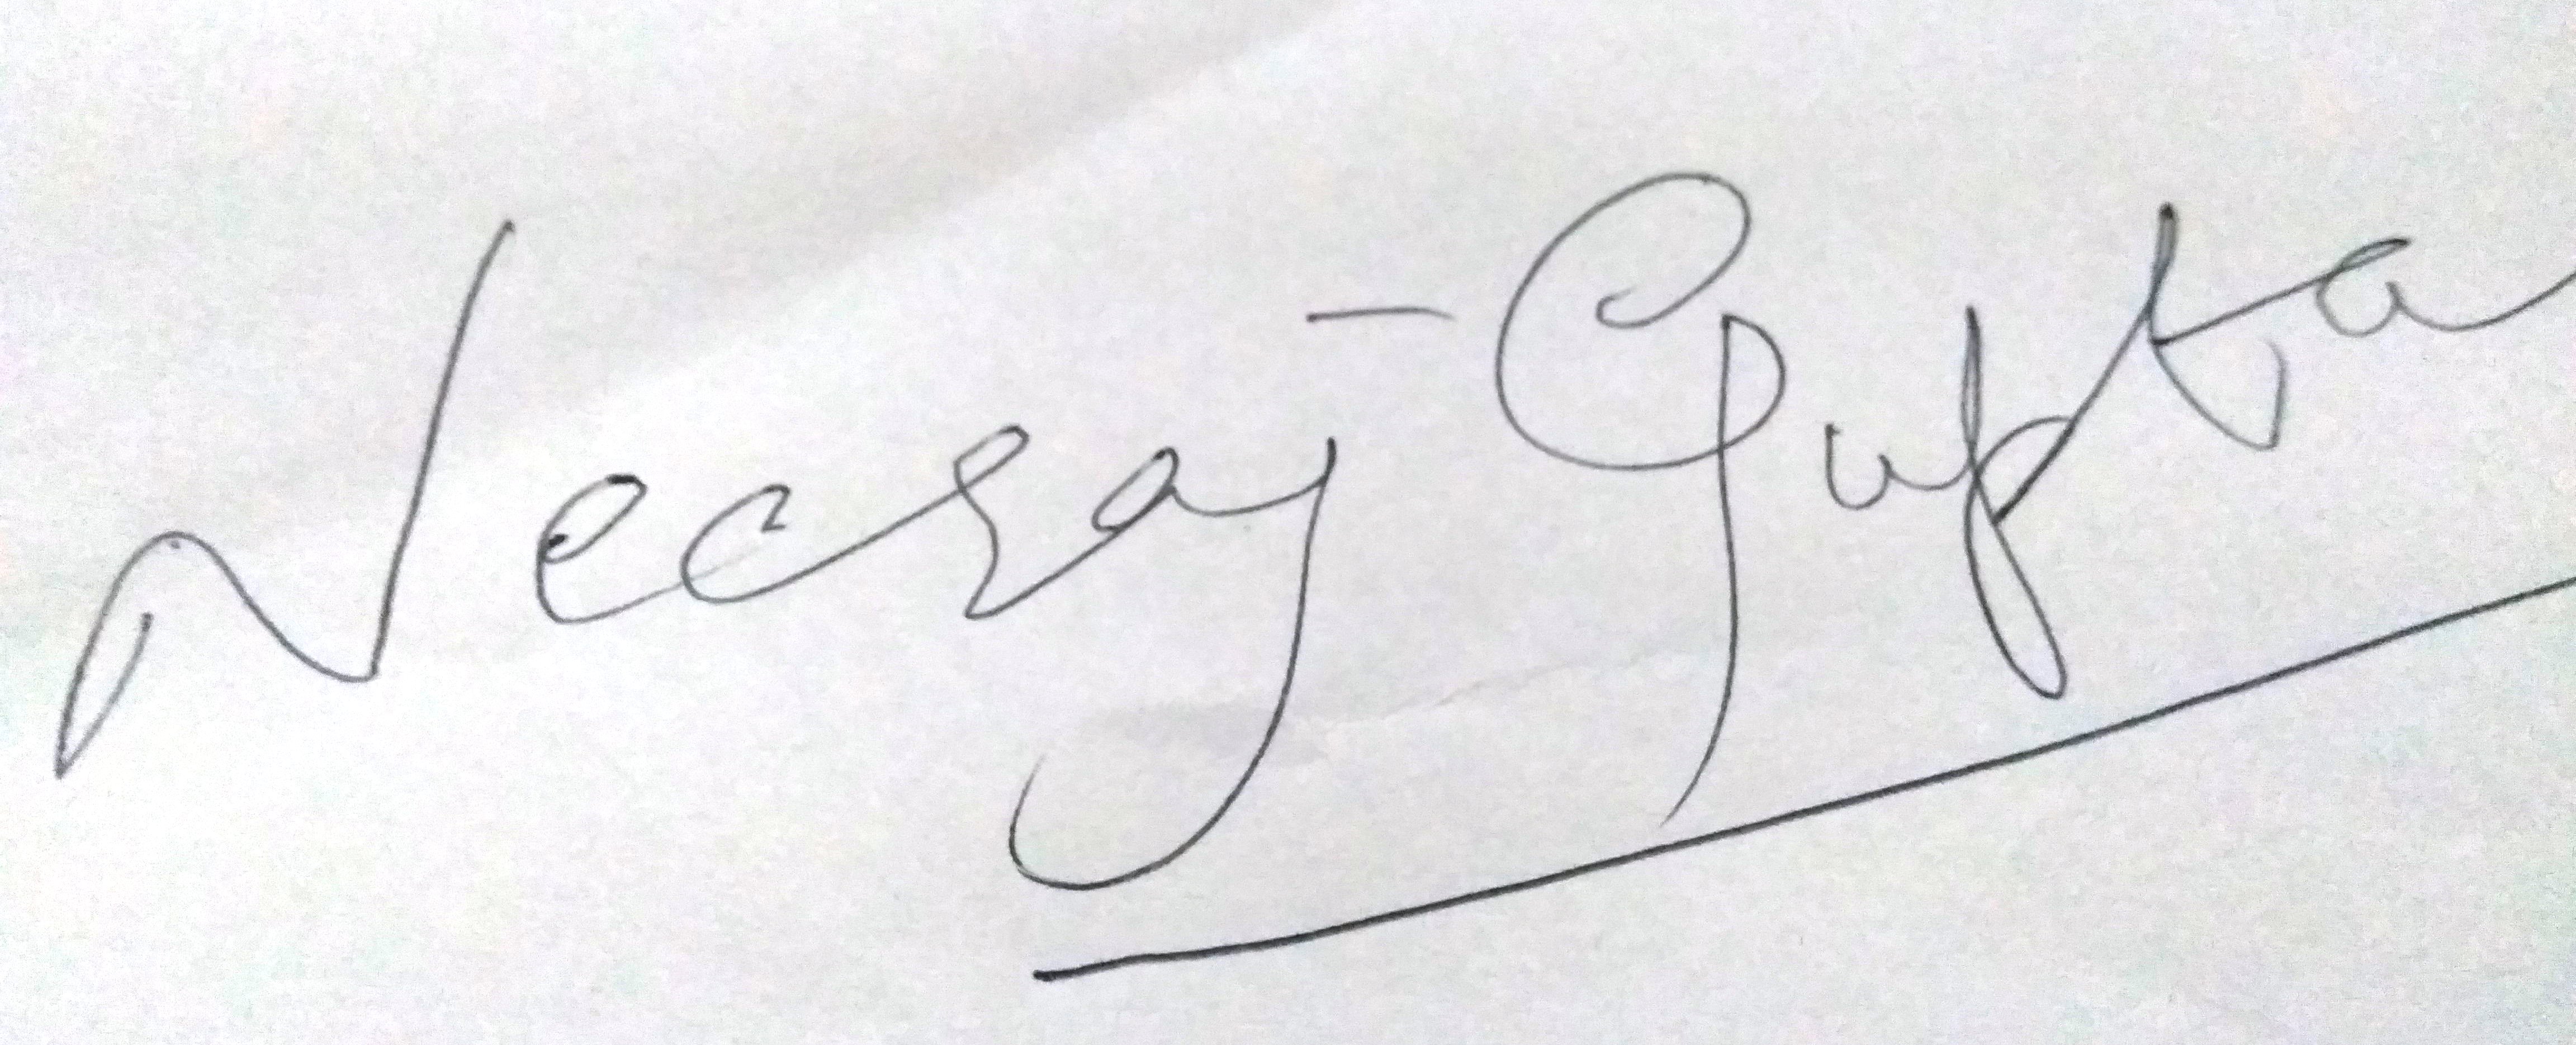 Neeraj Gupta